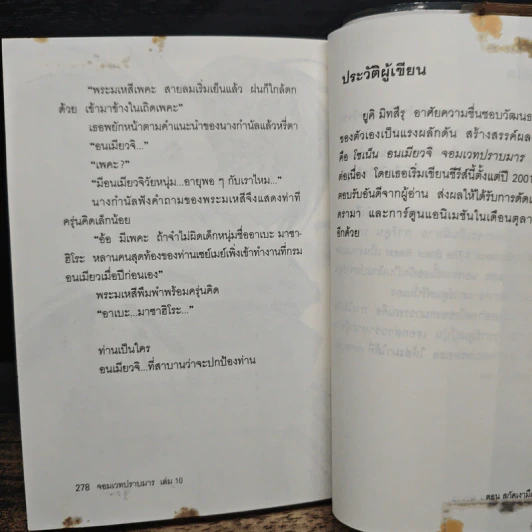 "พระมเหสีเพคะ สายลมเริ่มเย็นแล้ว ฝนก็ใกล้ตก
ด้วย เข้ามาข้างในเถิดเพคะ"
เธอพยักหน้าตามคำแนะนำของนางกำนัลแล้วหรี่ตา
"อนเมียวจิ..."
"เพคะ?"
"มีอนเมียวจิวัยหนุ่ม...อายุพอ ๆ กับเราไหม..."
นางกำนัลฟังคำถามของพระมเหสีจึงแสดงท่าที
ครุ่นคิดเล็กน้อย
"อ้อ มีเพคะ ถ้าจำไม่ผิดเด็กหนุ่มชื่ออาเบะ มาซา-
ฮิโระ หลานคนสุดท้องของท่านเซย์เมย์เพิ่งเข้าทำงานที่กรม
อนเมียวเมื่อปีก่อนเอง"
พระมเหสีพึมพำพร้อมครุ่นคิด
"อาเบะ...มาซาฮิโระ..."
ท่านเป็นใคร
อนเมียวจิ...ที่สาบานว่าจะปกป้องท่าน
278 จอมเวทปราบมาร เล่ม 10
ประวัติผู้เขียน
ยูคิ มิทสึรุ อาศัยความชื่นชอบวัฒนธ
ของตัวเองเป็นแรงผลักดัน สร้างสรรค์ผล
คือ โชเน็น อนเมียวจิ จอมเวทปราบมาร
ต่อเนื่อง โดยเธอเริ่มเขียนซีรีส์นี้ตั้งแต่ปี 2001
ตอบรับอันดีจากผู้อ่าน ส่งผลให้ได้รับการดัดแ
ดรามา และการ์ตูนแอนิเมชันในเดือนตุลา
อีกด้วย
ตอน